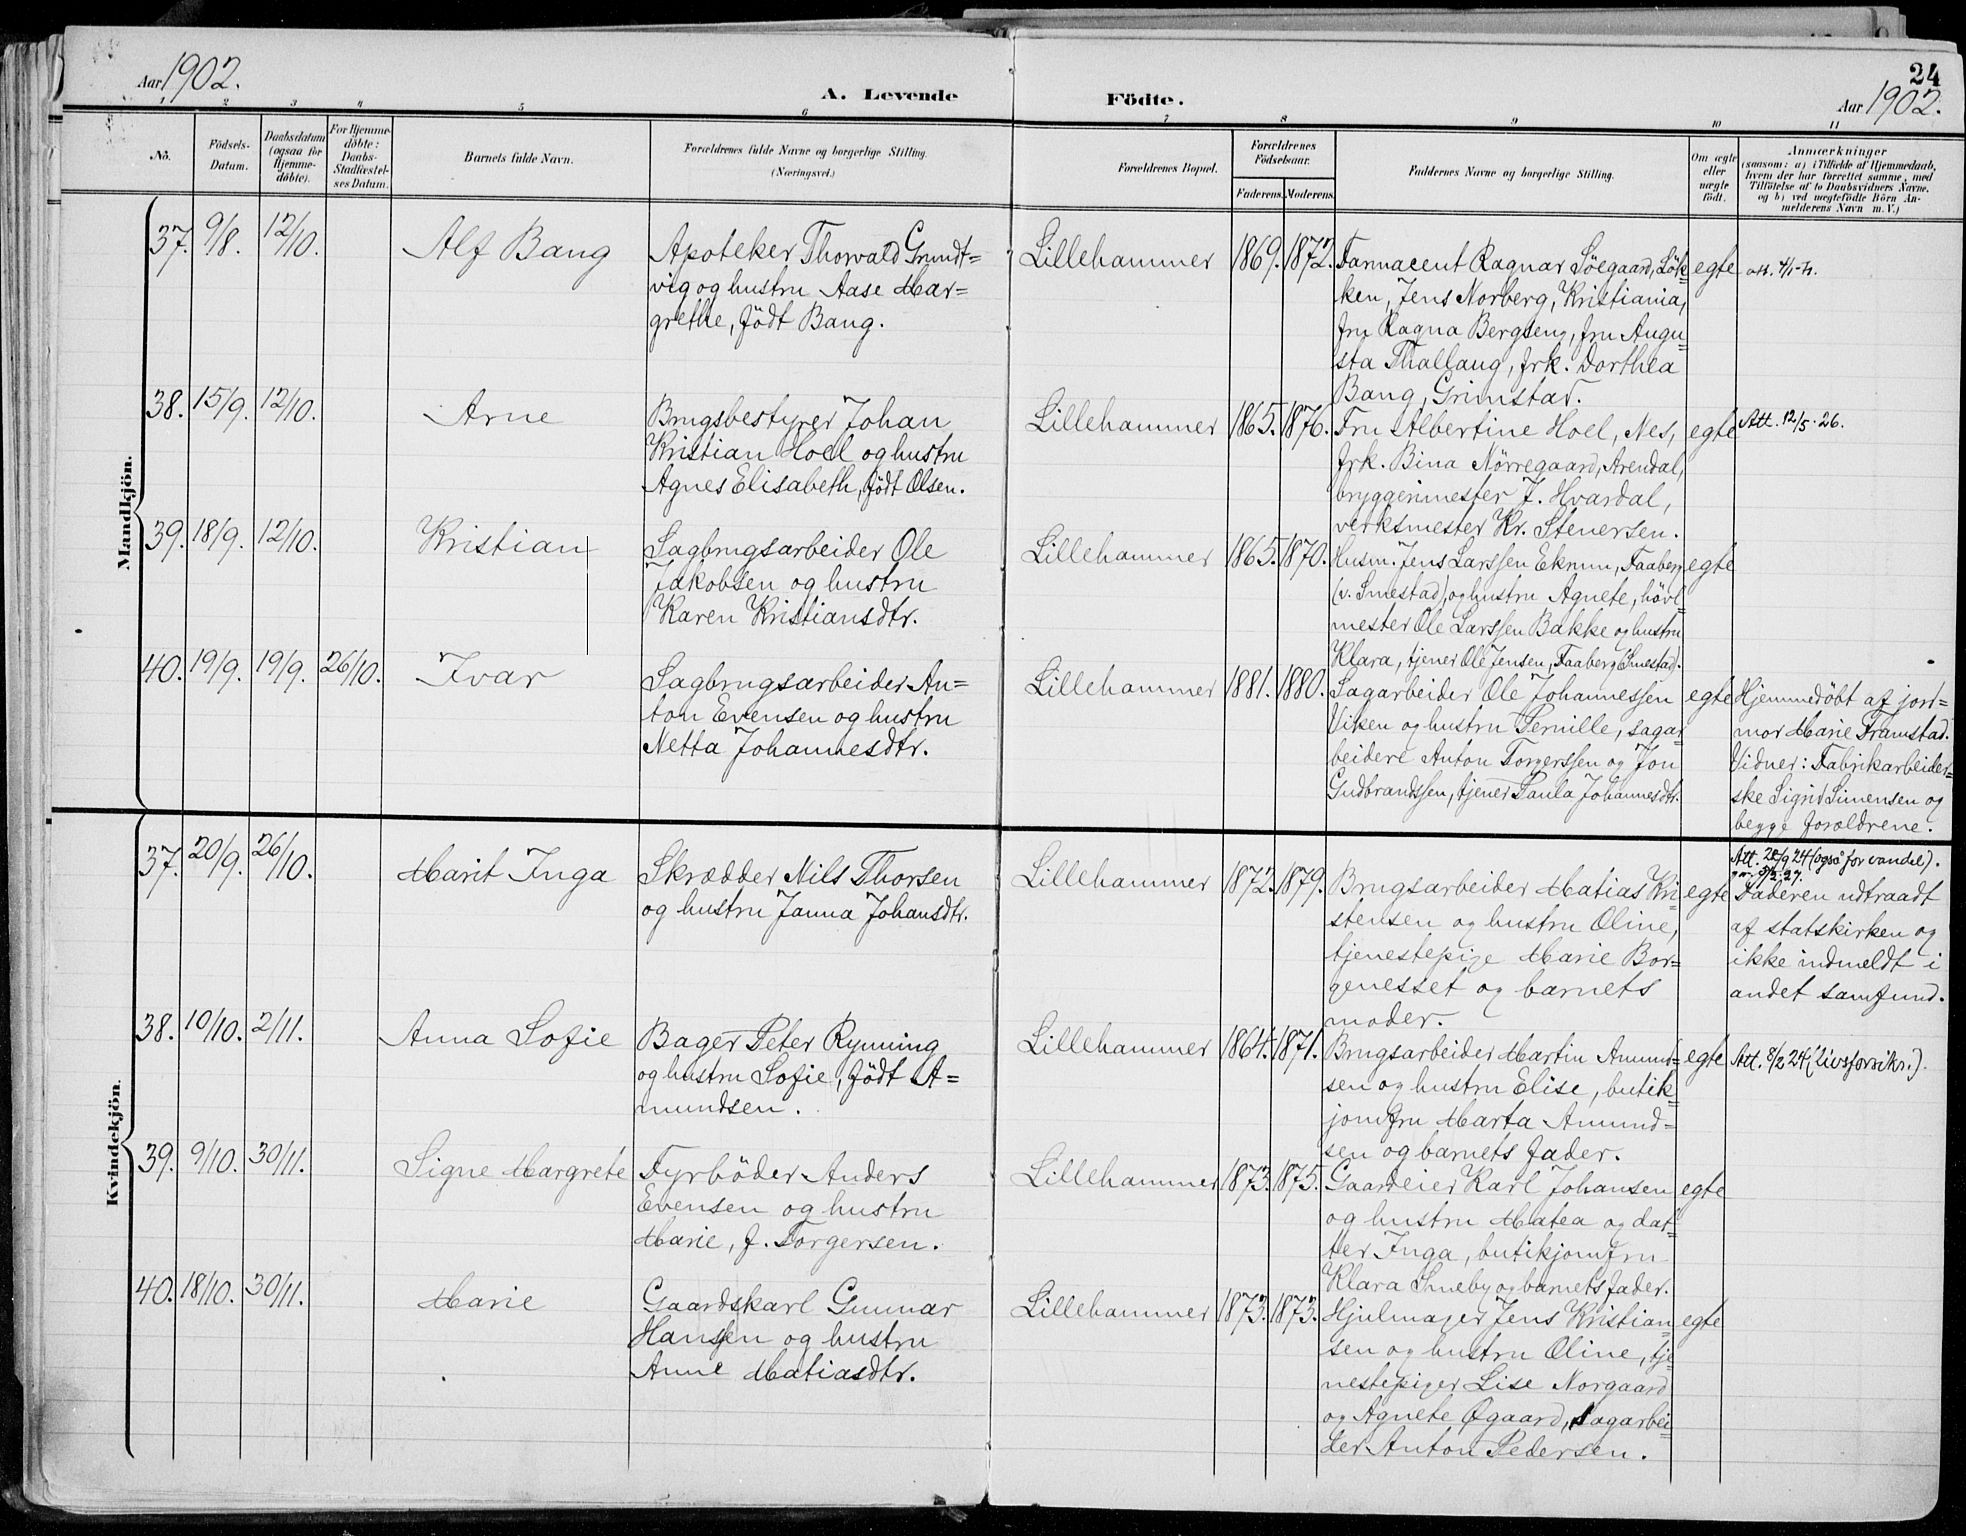 Aar 1902.
A. Levende Födte.
24
Aar 1902.
1 2 3 4 5 6 7 8 9 10 11
No.
Födsels-
Datum.
Daabsdatum
(ogsaa for
Hjemme-
döbte).
For Hjemme-
döbte:
Daabs-
Stadfæstel-
ses Datum.
Barnets fulde Navn.
Forældrenes fulde Navne og borgerlige Stilling.
(Næringsvei.)
Forældrenes Bopæl.
Forældrenes
Födselsaar.
Faderens. Moderens.
Faddernes Navne og borgerlige Stilling.
Om ægte
eller
uægte
född.
Anmærkninger
(saasom: a) i Tilfælde af Hjemmedaab,
hvem der har forrettet samme, med
Tilföielse af to Daabsvidners Navne,
og b) ved uægtefödte Börn An-
melderens Navn m. V.)
Mandkjön.
37. 9/8. 12/10. Alf Bang
Apoteker Thorvald Grundt=
vig og hustru Aase Mar=
grethe, födt Bang.
Lillehammer 1869. 1872.
Farmaceut Ragnar Söegaard, Lök=
ken, Jens Norberg, Kristiania,
fru Ragna Bergseng, fru Augu=
sta Thallaug, frk. Dorthea
Bang, Grimstad.
egte
38. 15/9. 12/10. Arne
Brugsbestyrer Johan
Kristian Hoel og hustru
Agnes Elisabeth, födt Olsen.
Lillehammer 1865. 1876.
Fru Albertine Hoel, Nes,
frk. Bina Nörregaard, Arendal,
bryggerimester J. Hvardal,
verksmester Kr. Stenersen.
egte
Att. 12/5. 26.
39. 18/9. 12/10. Kristian
Sagbrugsarbeider Ole
Jakobsen og hustru
Karen Kristiansdtr.
Lillehammer 1865. 1870.
Husm. Jens Larssen Ekrum, Faaberg
(v. Smestad), og hustru Agnete, hövl=
mester Ole Larssen Bakke og hustru
Klara, tjener Ole Jensen, Faaberg (Smestad).
egte
40. 19/9. 19/9. 26/10. Ivar
Sagbrugsarbeider An=
ton Evensen og hustru
Netta Johannesdtr.
Lillehammer 1881. 1880.
Sagarbeider Ole Johannessen
Viken og hustru Pernille, sagar=
beidere Anton Torgerssen og Jon
Gudbrandssen, tjener Paula Johannesdtr.
egte
Hjemmedöbt af jord=
mor Marie Framstad.
Vidner: Fabrikarbeider=
ske Sigrid Simensen og
begge forældrene.
Kvindekjön.
37. 20/9. 26/10. Marit Inga
Skrædder Nils Thorsen
og hustru Janna Johansdtr.
Lillehammer 1872. 1879.
Brugsarbeider Matias Kri=
stensen og hustru Oline,
tjenestepige Marie Bor=
genesset og barnets
moder.
egte
Att. 28/9 24 (også for vandel).
Faderen udtraadt
af statskirken og
ikke indmeldt i
andet samfund.
38. 10/10. 2/11. Anna Sofie
Bager Peter Rynning
og hustru Sofie, födt A=
mundsen.
Lillehammer 1864. 1871.
Brugsarbeider Martin Amund=
sen og hustru Elise, butik=
jomfru Marta Amund=
sen og barnets fader.
egte
Att. 8/2 24 (livsforsikr.).
39. 9/10. 30/11. Signe Margrete
Fyrböder Anders
Evensen og hustru
Marie, f. Torgersen.
Lillehammer 1873. 1875.
Gaardeier Karl Johansen
og hustru Matea og dat=
ter Inga, butikjomfru
Klara Smeby og barnets fader.
egte
40. 18/10. 30/11. Marie
Gaardskarl Gunnar
Hanssen og hustru
Anne Matiasdtr.
Lillehammer 1873. 1873.
Hjulmager Jens Kristian=
sen og hustru Oline, tje=
nestepiger Lise Norgaard
og Agnete Øgaard, sagarbei=
der Anton Pedersen.
egte